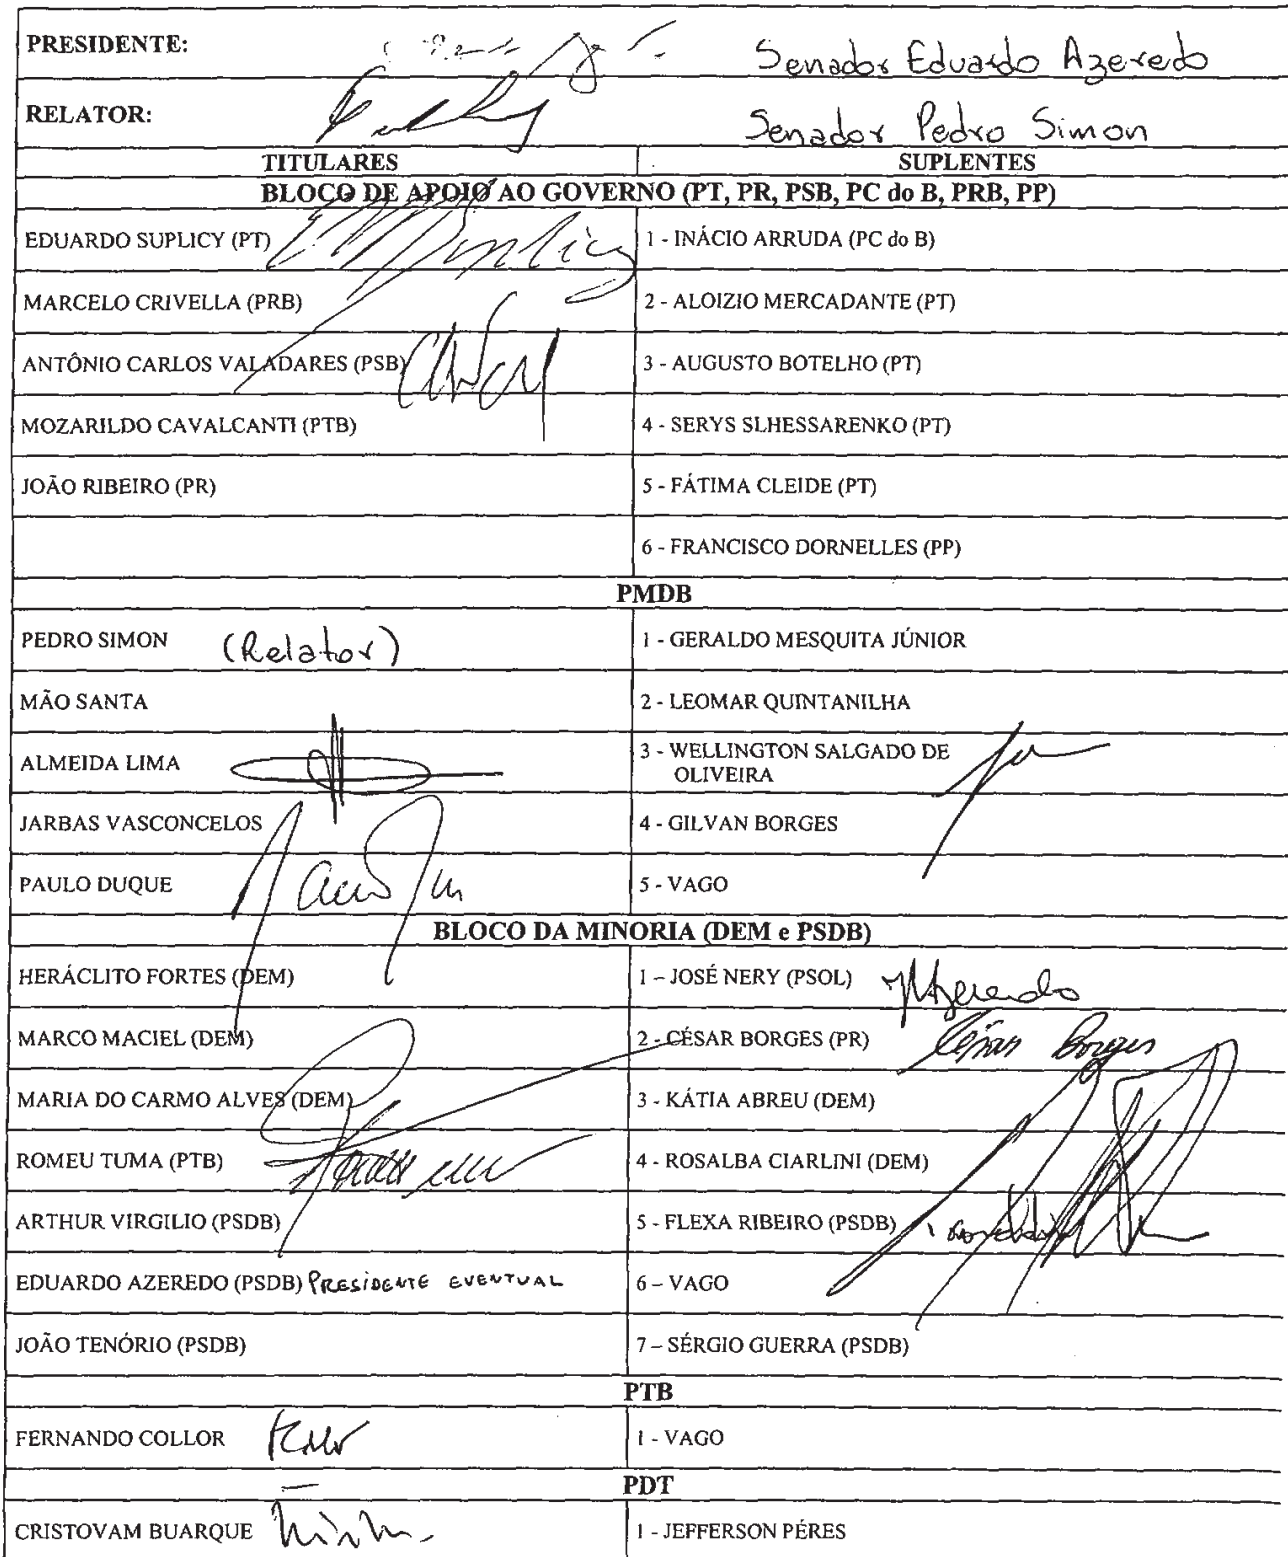 PRESIDENTE: Senador Eduardo Azeredo
RELATOR: Senador Pedro Simon
TITULARES SUPLENTES
BLOCO DE APOIO AO GOVERNO (PT, PR, PSB, PC do B, PRB, PP)
EDUARDO SUPLICY (PT) 1 - INÁCIO ARRUDA (PC do B)
MARCELO CRIVELLA (PRB) 2 - ALOIZIO MERCADANTE (PT)
ANTÔNIO CARLOS VALADARES (PSB) 3 - AUGUSTO BOTELHO (PT)
MOZARILDO CAVALCANTI (PTB) 4 - SERYS SLHESSARENKO (PT)
JOÃO RIBEIRO (PR) 5 - FÁTIMA CLEIDE (PT)
6 - FRANCISCO DORNELLES (PP)
PMDB
PEDRO SIMON (Relator) 1 - GERALDO MESQUITA JÚNIOR
MÃO SANTA 2 - LEOMAR QUINTANILHA
ALMEIDA LIMA 3 - WELLINGTON SALGADO DE
OLIVEIRA
JARBAS VASCONCELOS 4 - GILVAN BORGES
PAULO DUQUE 5 - VAGO
BLOCO DA MINORIA (DEM e PSDB)
HERÁCLITO FORTES (DEM) 1 – JOSÉ NERY (PSOL)
MARCO MACIEL (DEM) 2 - CÉSAR BORGES (PR) César Borges
MARIA DO CARMO ALVES (DEM) 3 - KÁTIA ABREU (DEM)
ROMEU TUMA (PTB) 4 - ROSALBA CIARLINI (DEM)
ARTHUR VIRGILIO (PSDB) 5 - FLEXA RIBEIRO (PSDB)
EDUARDO AZEREDO (PSDB) PRESIDENTE EVENTUAL 6 – VAGO
JOÃO TENÓRIO (PSDB) 7 – SÉRGIO GUERRA (PSDB)
PTB
FERNANDO COLLOR 1 - VAGO
PDT
CRISTOVAM BUARQUE 1 - JEFFERSON PÉRES